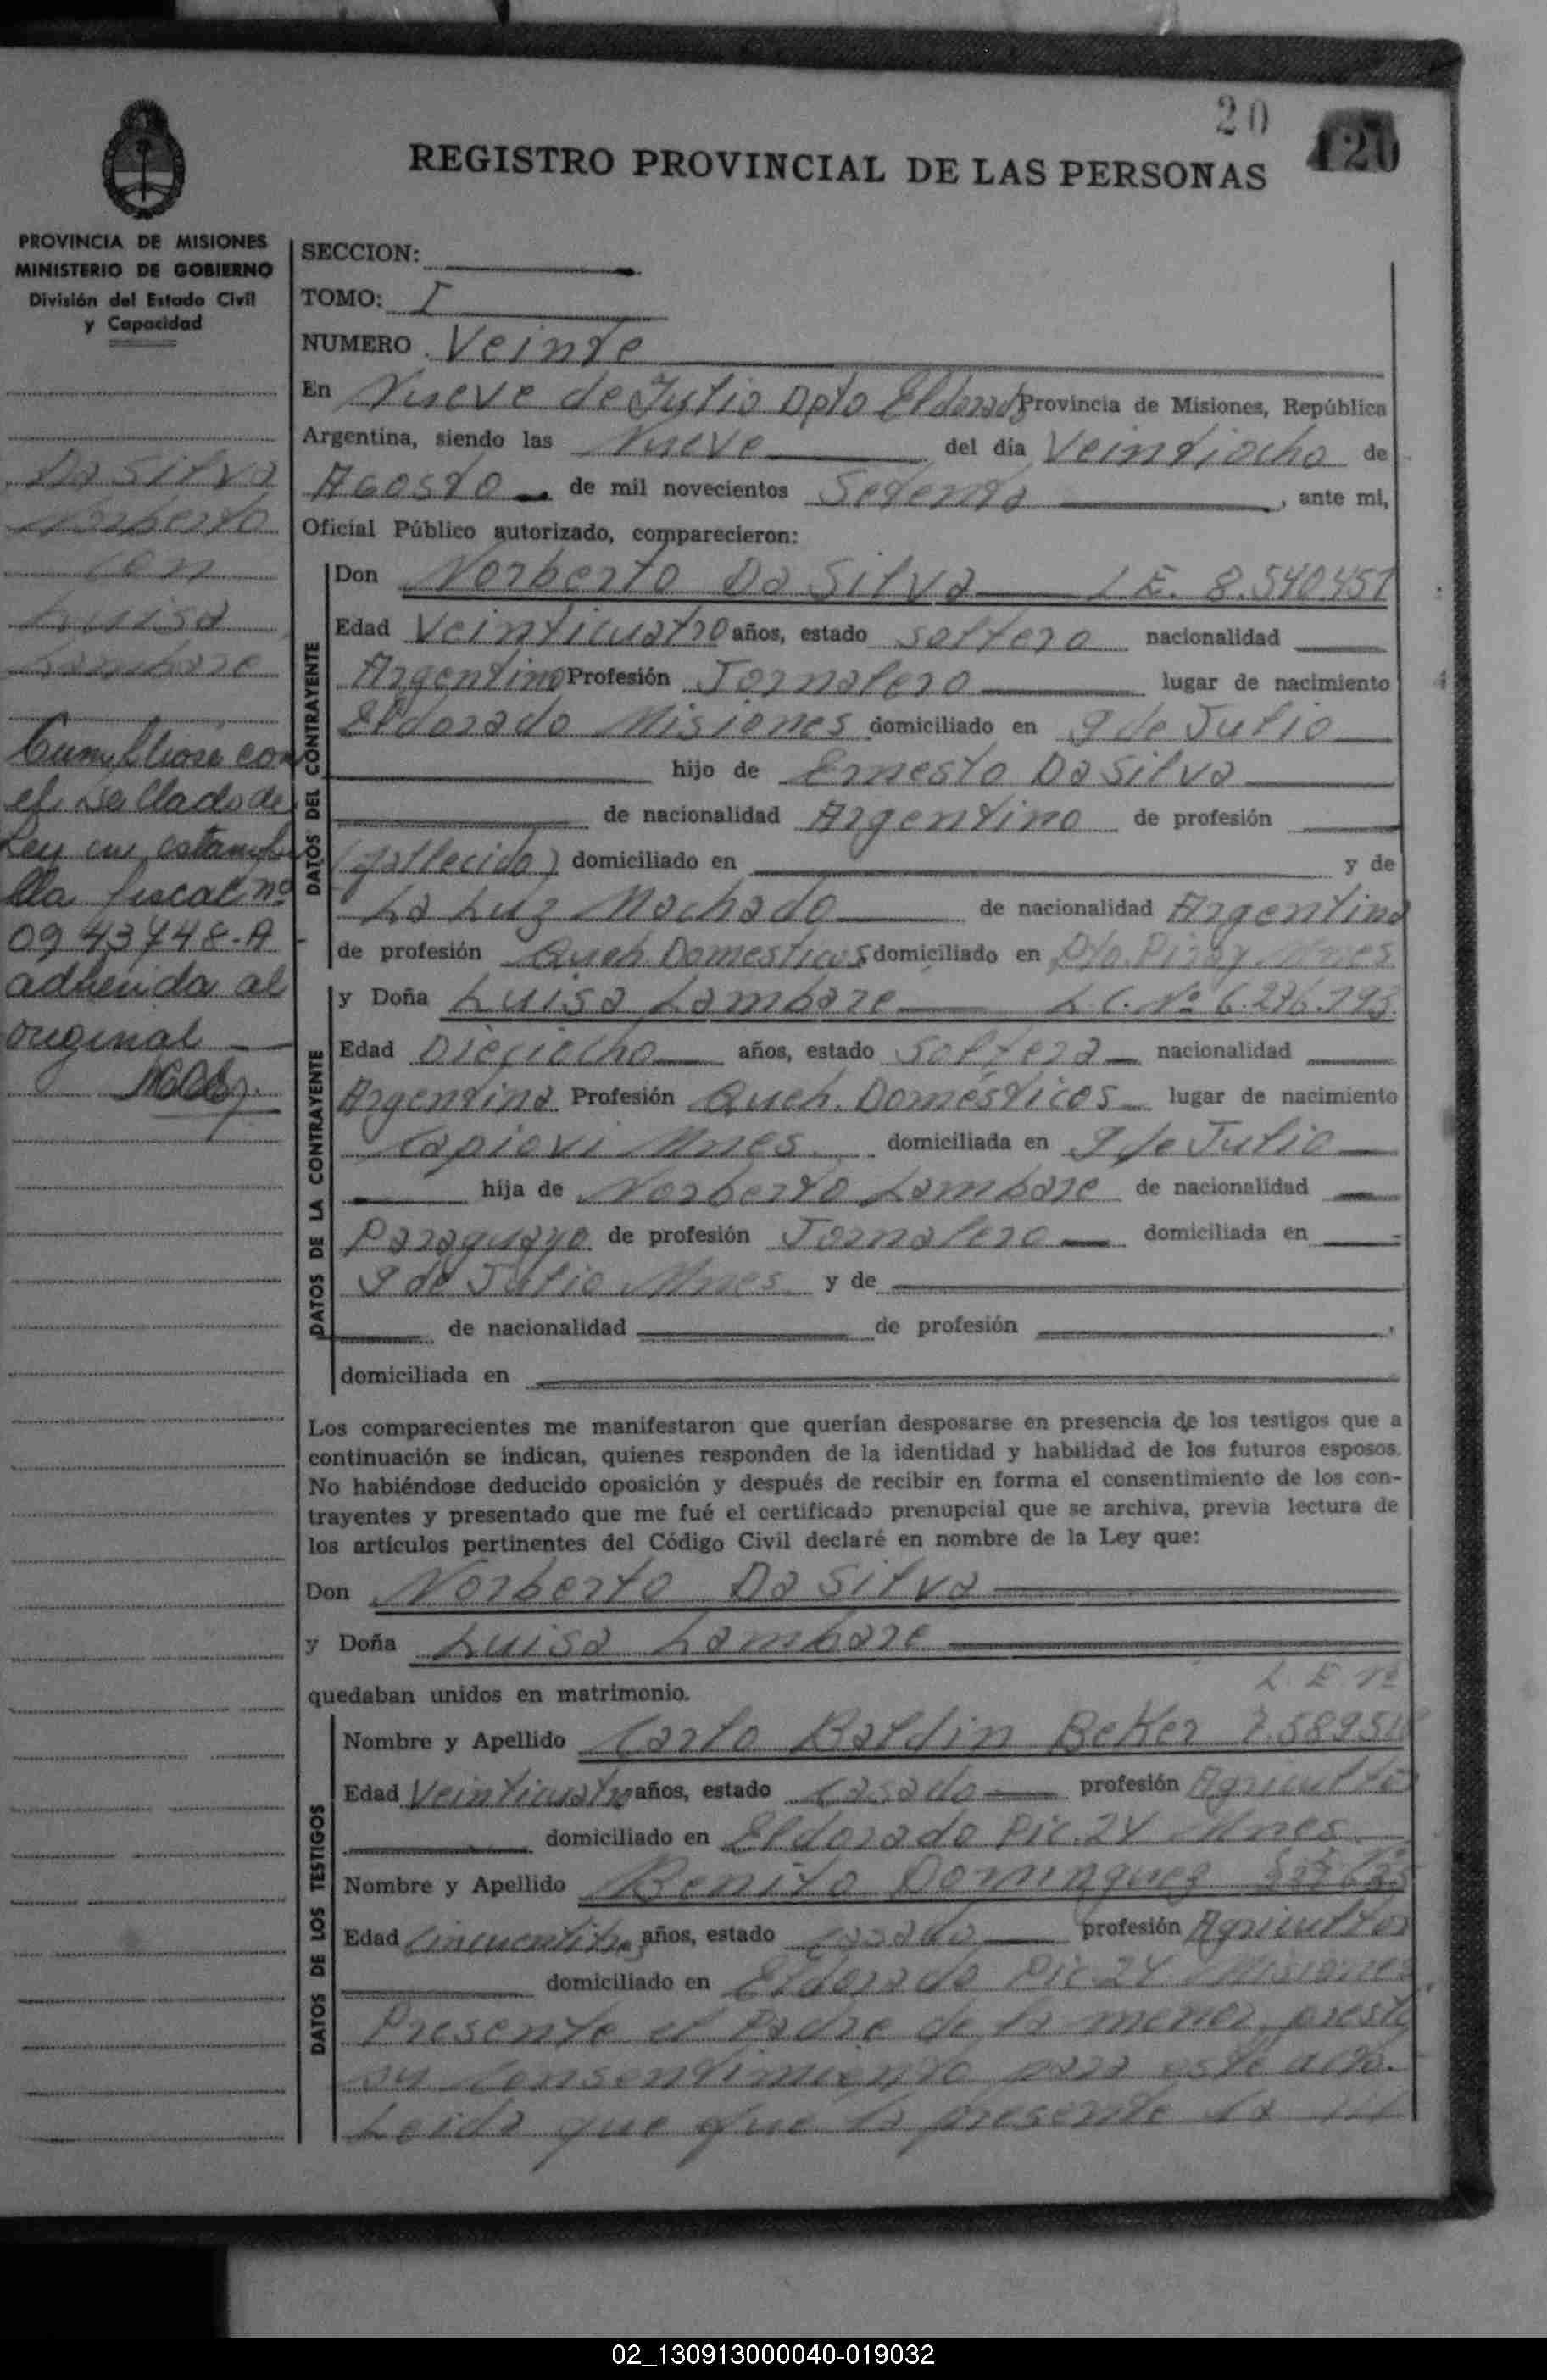 20
120
REGISTRO PROVINCIAL DE LAS PERSONAS
PROVINCIA DE MISIONES
MINISTERIO DE GOBIERNO
División del Estado Civil
y Capacidad
Da Silva
Norberto
con
Luisa
Lambare
Cumpliose con
el sellado de
Ley en estampi
lla fiscal nº
0943748-A
adherida al
original
SECCION:
TOMO: I
NUMERO Veinte
En Nueve de Julio Dpto Eldorado Provincia de Misiones, República
Argentina, siendo las Nueve del día Veintiocho de
Agosto de mil novecientos Setenta, ante mi,
Oficial Público autorizado, comparecieron:
DATOS DEL CONTRAYENTE
Don Norberto Da Silva L.E. 8.540.451
Edad Veinticuatro años, estado soltero nacionalidad
Argentino Profesión Jornalero lugar de nacimiento
Eldorado Misiones domiciliado en 9 de Julio
hijo de Ernesto Da Silva
de nacionalidad Argentino de profesión
(fallecido) domiciliado en y de
La Luz Machado de nacionalidad Argentina
de profesión Queh. Domesticos domiciliado en Pto. Piray Mnes
DATOS DE LA CONTRAYENTE
y Doña Luisa Lambare L.C. Nº 6.276.793
Edad Dieciocho años, estado Soltera nacionalidad
Argentina Profesión Queh. Domésticos lugar de nacimiento
Capiovi Mnes domiciliada en 9 de Julio
hija de Norberto Lambare de nacionalidad
Paraguayo de profesión Jornalero domiciliada en
9 de Julio Mnes y de
de nacionalidad de profesión
domiciliada en
Los comparecientes me manifestaron que querían desposarse en presencia de los testigos que a
continuación se indican, quienes responden de la identidad y habilidad de los futuros esposos.
No habiéndose deducido oposición y después de recibir en forma el consentimiento de los con-
trayentes y presentado que me fué el certificado prenupcial que se archiva, previa lectura de
los artículos pertinentes del Código Civil declaré en nombre de la Ley que:
Don Norberto Da Silva
y Doña Luisa Lambare
quedaban unidos en matrimonio.
L.E nº
DATOS DE LOS TESTIGOS
Nombre y Apellido Carlo Baldin Beker
Edad Veinticuatro años, estado casado profesión Agricultor
domiciliado en Eldorado Pic. 24 Mnes
Nombre y Apellido Benito Dominguez
Edad Cincuentitres años, estado casado profesión Agricultor
domiciliado en Eldorado Pic 24 Misiones
Presente el Padre de la menor presta
su consentimiento para este acto.
Leida que fue la presente la
02_130913000040-019032